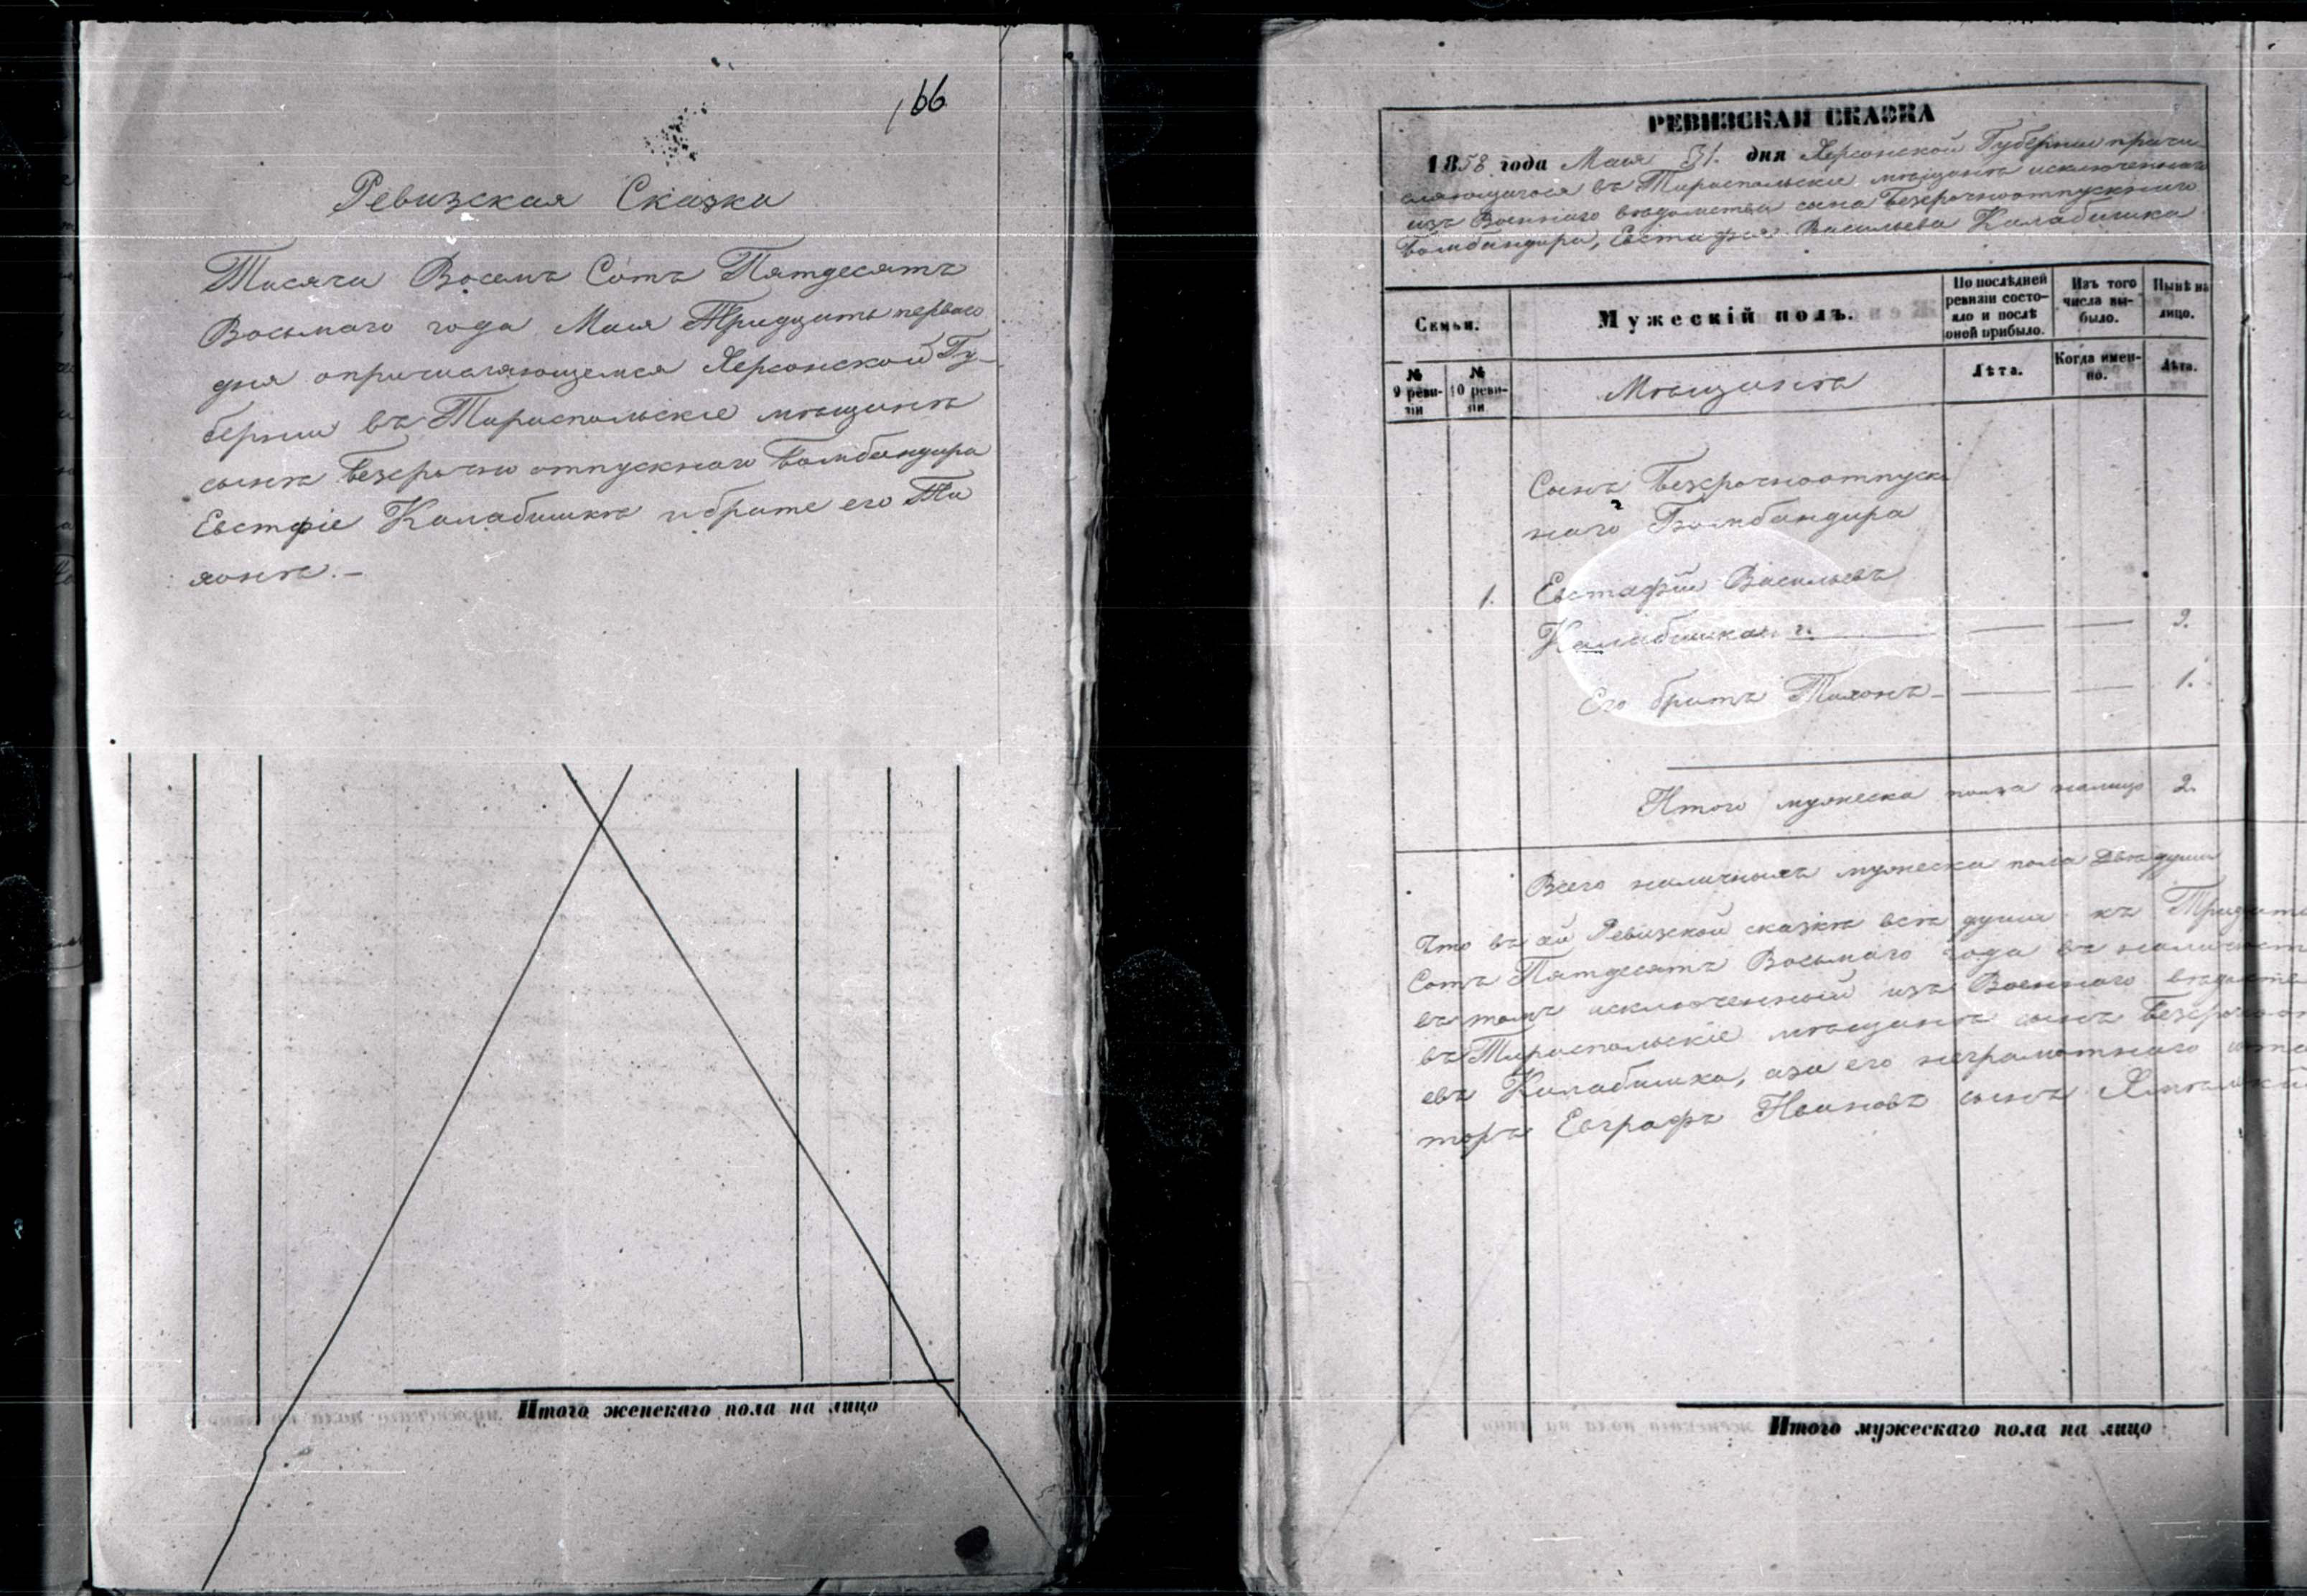 166
Ревизская Сказка
Тысяча Восемь Сотъ Пятдесятъ
Восьмаго года Мая Тридцать перваго
дня опричисляющемся Херсонской Гу-
берніи въ Тираспольскіе мѣщане
сынѣ безсрочно отпускнаго бомбандира
Евстфіе Калабишкѣ и братѣ его Ти
хонѣ.-
Итого женскаго пола на лицо
РЕВИЗСКАЯ СКАЗКА
1858 года Мая 31. дня Херсонской Губерніи причи-
сляющагося въ Тираспольскіе мѣщане исключеннаго
изъ Военнаго вѣдомства сына безсрочноотпускнаго
бомбандира, Евстафія Васильева Калабишка
Семьи.
Мужескій полъ.
По послѣдней ревизіи состо-
яло и послѣ
оной прибыло.
Изъ того
числа вы-
было.
Нынѣ на
лицо.
№
9 реви-
зіи
№
10 реви-
зіи
Мѣщане
Лѣта.
Когда имен-
но.
Лѣта.
Сынъ безсрочноотпуск
наго Бомбандира
1. Евстафій Васильевъ
Калабишка 2.
Его братъ Тихонъ 1.
Итого мужеска пола налицо 2.
Всего наличныхъ мужеска пола двѣ души
Что въ сей Ревизской сказкѣ всѣ души къ
Сотъ Пятдесятъ Восьмаго года въ
въ томъ исключенный изъ Военнаго
въ Тираспольскіе мѣщане сынъ
евъ Калабишка, а за его неграмотнаго
торъ Евграфъ Ивановъ сынъ
Итого мужескаго пола на лицо